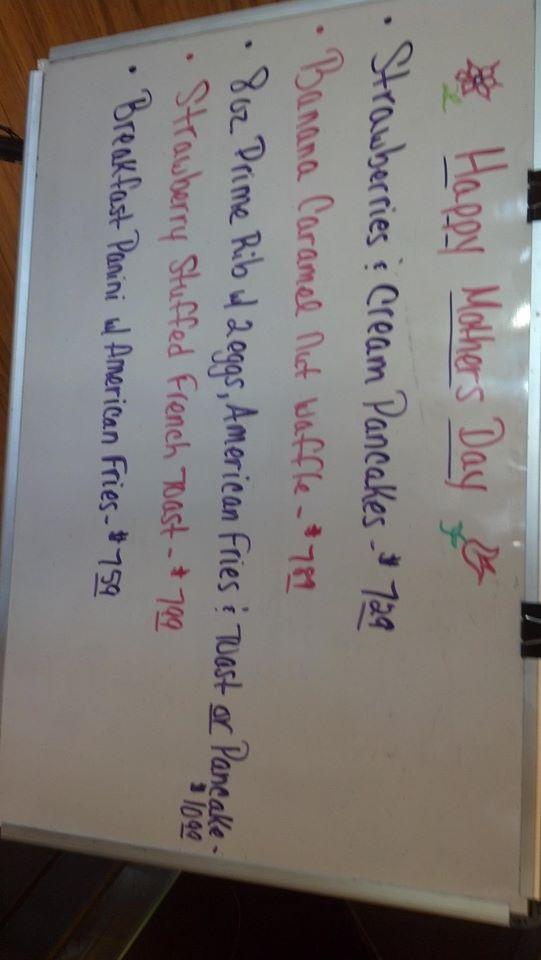 Happy Mothers Day
• Strawberries & Cream Pancakes - $7 29
• Banana Caramel Nut Waffle - $7 89
• 8oz Prime Rib w/ 2 eggs, American Fries & Toast or Pancake -
$10 99
• Strawberry Stuffed French Toast - $7 99
• Breakfast Panini w/ American Fries - $7 59